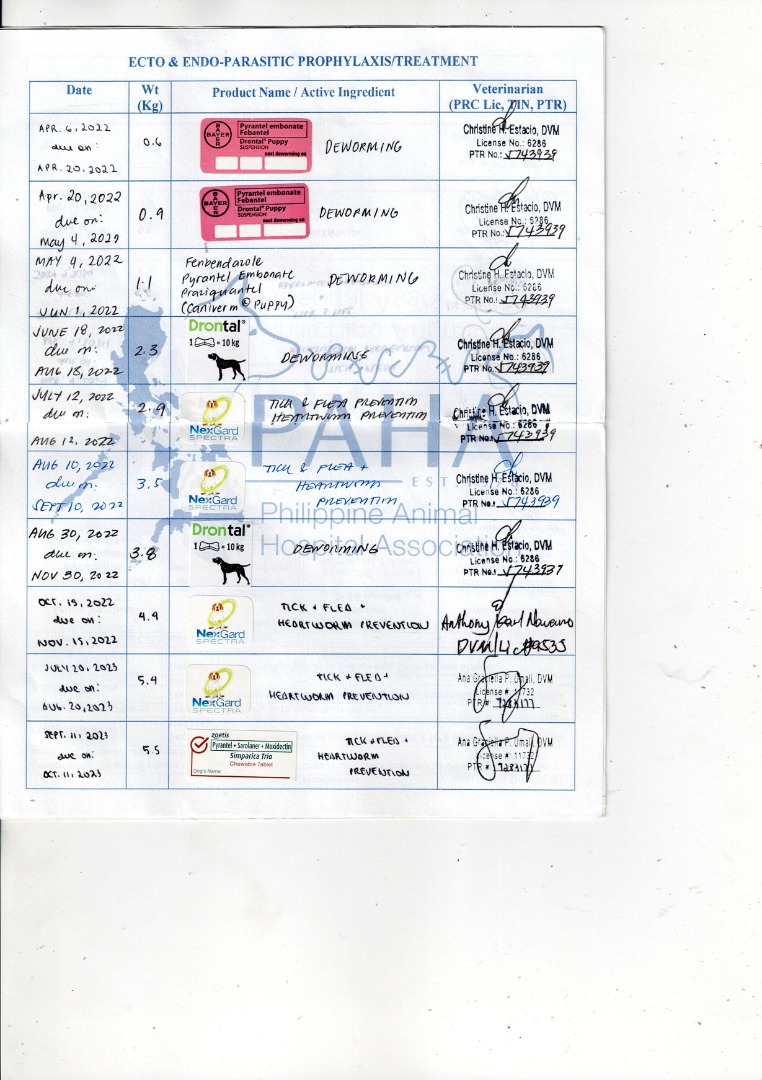 ECTO & ENDO-PARASITIC PROPHYLAXIS/TREATMENT
Date
Wt
(Kg)
Product Name / Active Ingredient
Veterinarian
(PRC Lic, TIN, PTR)
APR. 6, 2022
due on:
APR. 20, 2022
0.6
BAYER
Pyrantel embonate
Febantel
Drontal® Puppy
SUSPENSION
next deworming on
DEWORMING
Christine H. Estacio, DVM
License No.: 6286
PTR No.: 5743939
Apr. 20, 2022
due on:
May 4, 2022
0.9
BAYER
Pyrantel embonate
Febantel
Drontal® Puppy
SUSPENSION
next deworming on
DEWORMING
Christine H. Estacio, DVM
License No.: 6286
PTR No.: 5743939
MAY 4, 2022
due on:
JUN 1, 2022
1.1
Fenbendazole
Pyrantel Embonate
Praziquantel
(Caniverm® Puppy)
DEWORMING
Christine H. Estacio, DVM
License No.: 6286
PTR No.: 5743939
JUNE 18, 2022
due on:
AUG 18, 2022
2.3
Drontal®
1 = 10 kg
DEWORMING
Christine H. Estacio, DVM
License No.: 6286
PTR No.: 5743939
JULY 12, 2022
due on:
AUG 12, 2022
2.9
NexGard
SPECTRA
TICK & FLEA PREVENTION
HEARTWORM PREVENTION
Christine H. Estacio, DVM
License No.: 6286
PTR No.: 5743939
AUG 10, 2022
due on:
SEPT 10, 2022
3.5
NexGard
SPECTRA
TICK & FLEA +
HEARTWORM
PREVENTION
Christine H. Estacio, DVM
License No.: 6286
PTR No.: 5743939
AUG 30, 2022
due on:
NOV 30, 2022
3.8
Drontal®
1 = 10 kg
DEWORMING
Christine H. Estacio, DVM
License No.: 6286
PTR No.: 5743937
PAHA
EST
Philippine Animal
Hospital Association
OCT. 15, 2022
due on:
NOV. 15, 2022
4.9
NexGard
SPECTRA
TICK + FLEA +
HEARTWORM PREVENTION
Anthony Earl Navarro
DVM/Lic#9535
JULY 20, 2023
due on:
AUG. 20, 2023
5.4
NexGard
SPECTRA
TICK + FLEA +
HEARTWORM PREVENTION
Ana Graciella P. Umali, DVM
License #: 11732
PTR #: 7283177
SEPT. 11, 2023
due on:
OCT. 11, 2023
5.5
zoetis
Pyrantel + Sarolaner + Moxidectin
Simparica Trio
Chewable Tablet
Dog's Name
TICK + FLEA +
HEARTWORM
PREVENTION
Ana Graciella P. Umali, DVM
License #: 11732
PTR #: 7283177